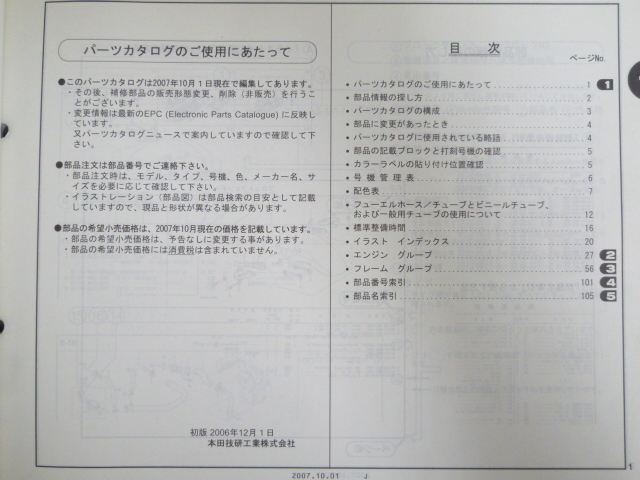 パーツカタログのご使用にあたって
●このパーツカタログは2007年10月1日現在で編集してあります。
・その後、補修部品の販売形態変更、削除（非販売）を行うこ
とがございます。
・変更情報は最新のEPC (Electronic Parts Catalogue) に反映し
ています。
又パーツカタログニュースで案内していますので確認して下
さい。
●部品注文は部品番号でご連絡下さい。
・部品注文時は、モデル、タイプ、号機、色、メーカー名、サ
イズを必要に応じて確認して下さい。
・イラストレーション（部品図）は部品検索の目安として記載
していますので、現品と形状が異なる場合があります。
●部品の希望小売価格は、2007年10月現在の価格を記載しています。
・部品の希望小売価格は、予告なしに変更する事があります。
・部品の希望小売価格には消費税は含まれていません。
初版 2006年12月1日
本田技研工業株式会社
目 次
ページNo.
• パーツカタログのご使用にあたって 1 1
• 部品情報の探し方 2
• パーツカタログの構成 3
• 部品に変更があったとき 4
• パーツカタログに使用されている略語 4
• 部品の記載ブロックと打刻号機の確認 5
• カラーラベルの貼り付け位置確認 5
• 号 機 管 理 表 6
• 配色表 7
• フューエルホース／チューブとビニールチューブ、
および一般用チューブの使用について 12
• 標準整備時間 16
• イラスト インデックス 20
• エンジン グループ 27 2
• フレーム グループ 56 3
• 部品番号索引 101 4
• 部品名索引 105 5
1
2007.10.01 J